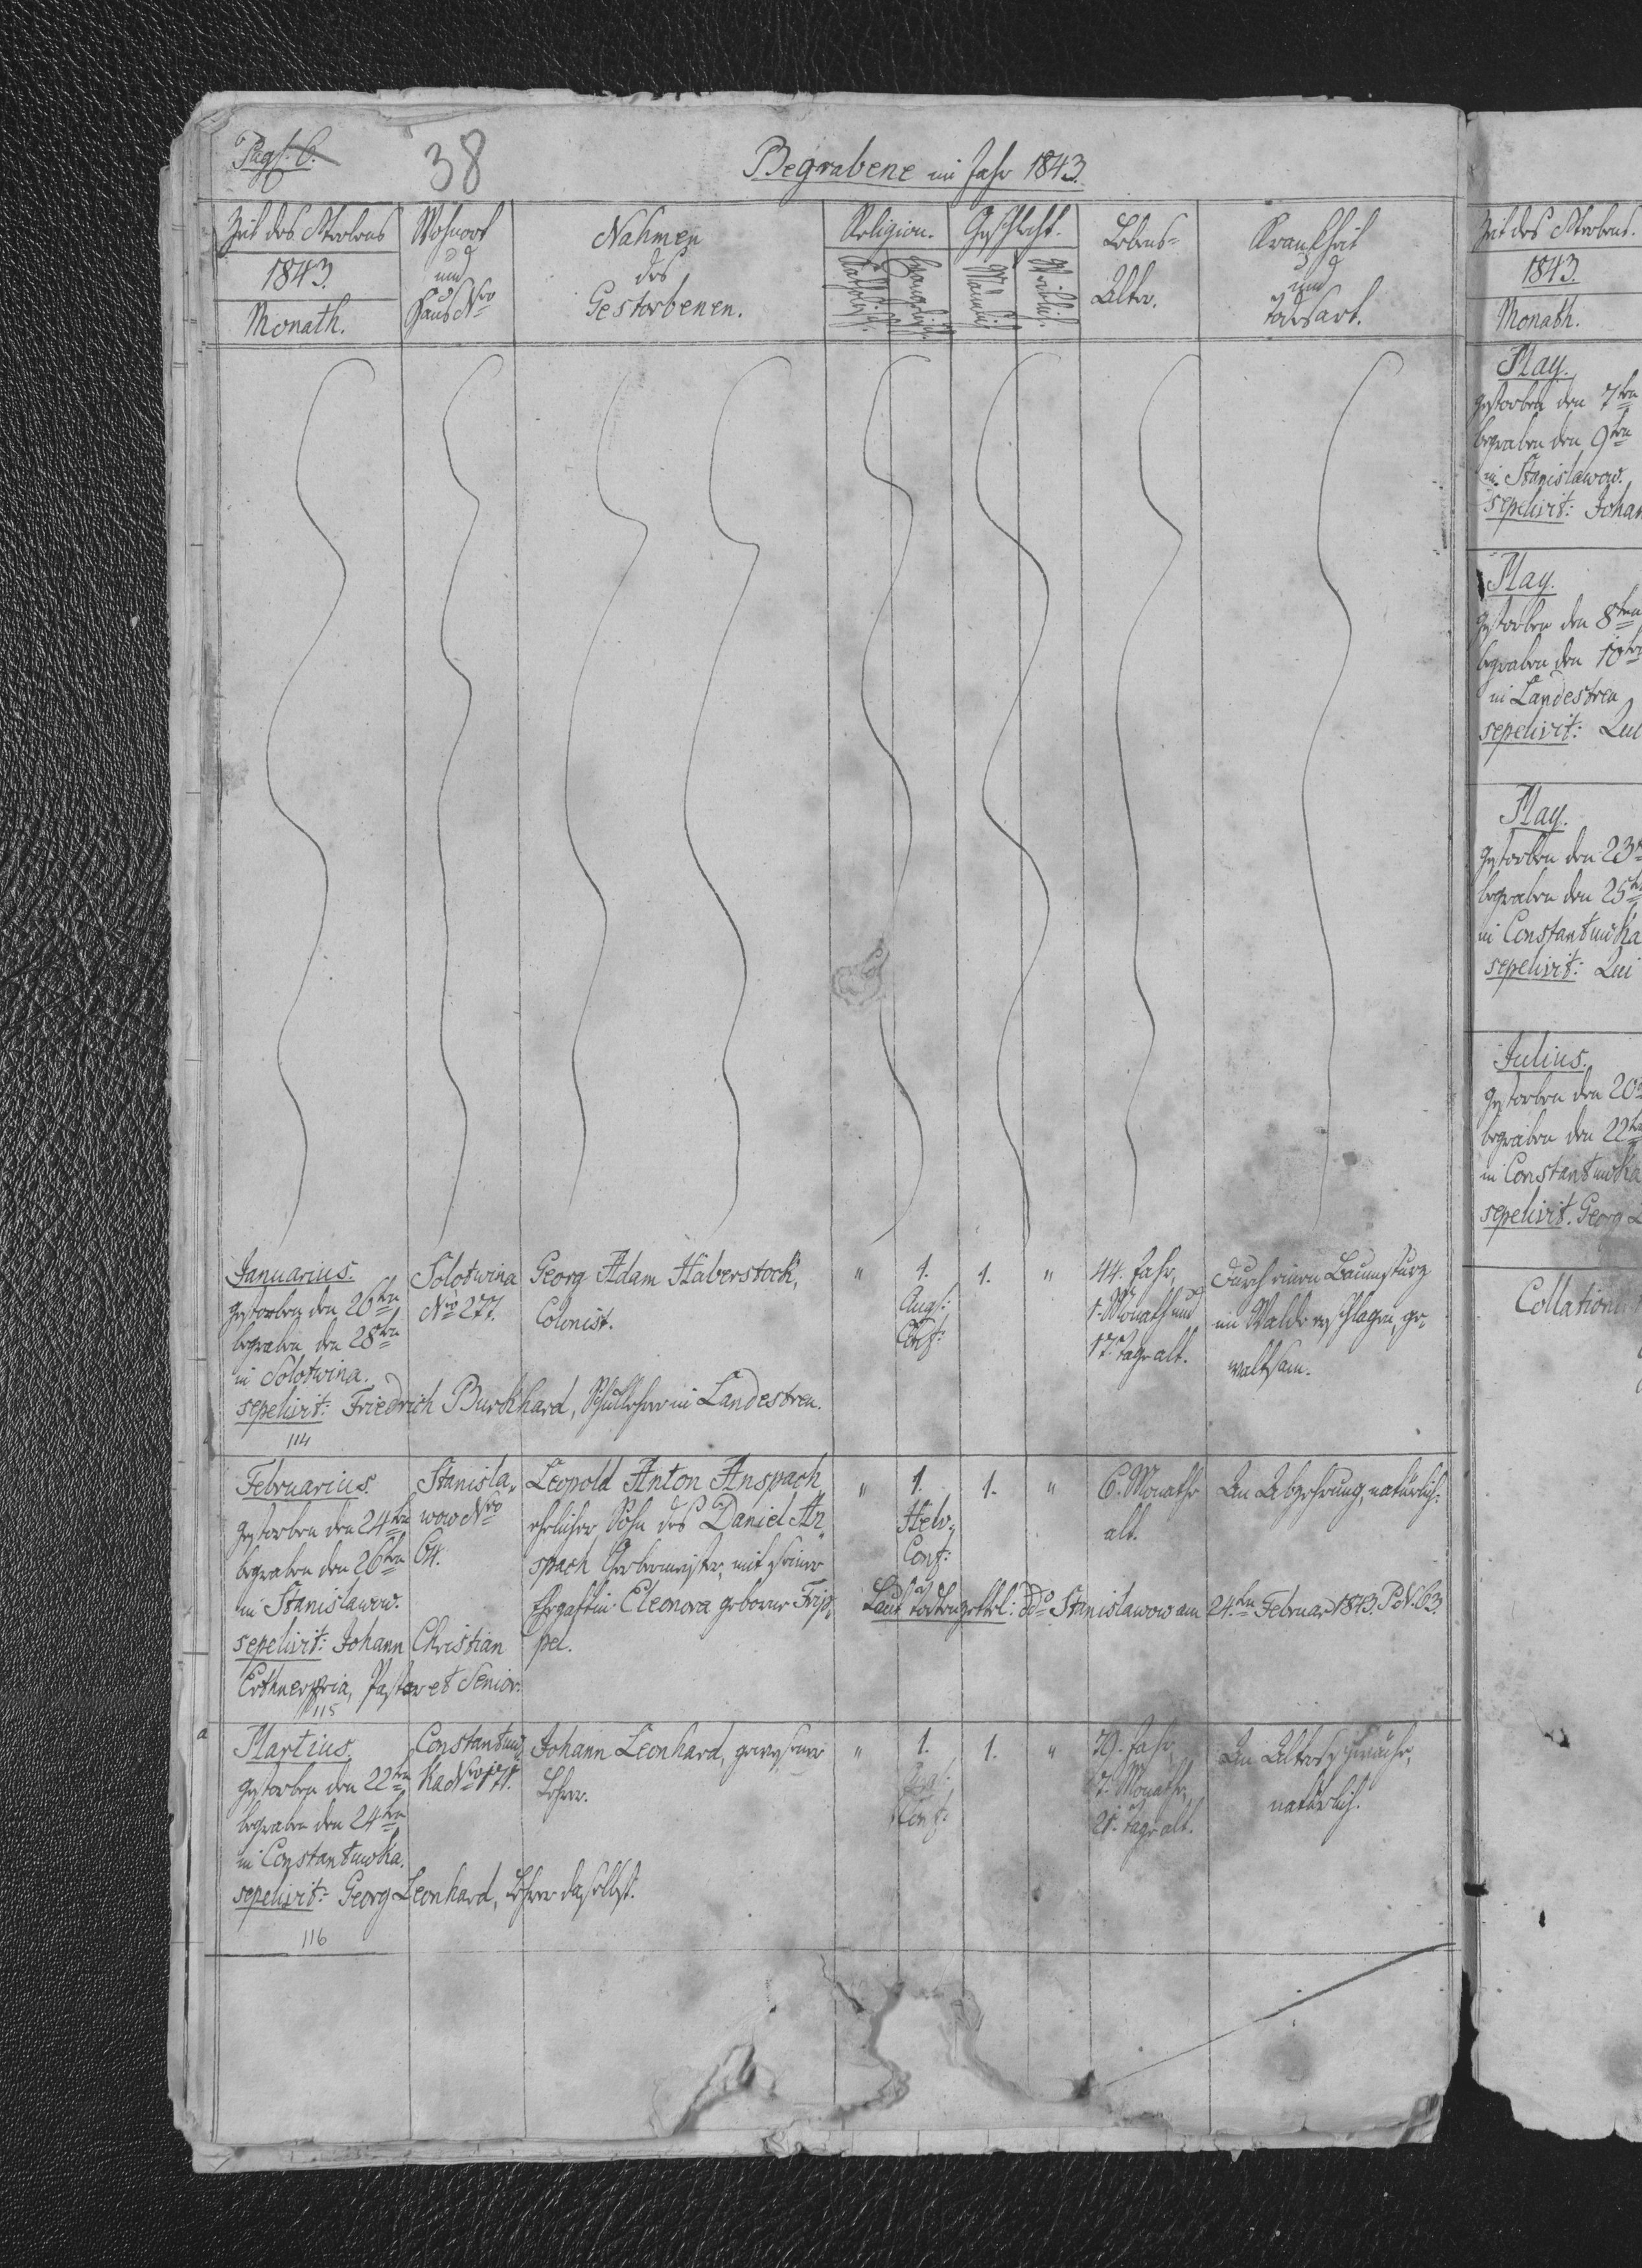 Pag. 6.
38
Begrabene im Jahr 1843.
Zeit des Sterbens
1843.
Monath.
Wohnort
und
Haus Nro
Nahmen
des
Gestorbenen.
Religion.
Katholisch.
Evangelisch.
Geschlecht.
Männlich.
Weiblich.
Lebens=
Alter.
Krankheit
und
todesart.
Januarius.
gestorben den 26ten
begraben den 28ten
in Solotwina.
sepelivit: Friedrich Burkhard, Schullehrer in Landestreu.
114
Solotwina
Nro 277.
Georg Adam Haberstock,
Colonist.
"
1.
Augs:
Conf:
1.
"
44. Jahr,
1. Monath und
17. tage alt.
Durch einen Baumsturz
im Walde erschlagen, ge,
waltsam.
Februarius.
gestorben den 24ten
begraben den 26ten
in Stanislawow.
sepelivit: Johann Christian
Pastor et Senior.
115
Stanisla,
wow Nro
64.
Leopold Anton Anspach
ehelicher Sohn des Daniel An,
spach Gerbermeister, mit seiner
Ehegattin Eleonora geborne Trip,
pel.
"
1.
Helv:
Conf:
1.
"
6. Monathe
alt.
An Abzehrung, natürlich:
Laut todtenzettel: ddo Stanislawow am 24ten Februar 1843. P. N. 63.
Martius.
gestorben den 22ten
begraben den 24ten
in Constantuwka.
sepelivit: Georg Leonhard, Lehrer daselbst.
116
Constantuw,
ka Nro 171.
Johann Leonhard, gewesener
Lehrer.
"
1.
Aug:
Conf:
1.
"
79. Jahr,
7. Monathe,
21. tage alt.
An Altersschwäche,
natürlich.
Zeit des Sterbens.
1843.
Monath.
May.
gestorben den 7ten
begraben den 9ten
in Stanislawow.
sepelivit: Johan
May.
gestorben den 8ten
begraben den 10ten
in Landestreu
sepelivit: Qui
May.
gestorben den 23
begraben den 25te
in Constantuwka
sepelivit: Qui
Julius.
gestorben den 20
begraben den 22te
in Constantuwka
sepelivit: Georg L